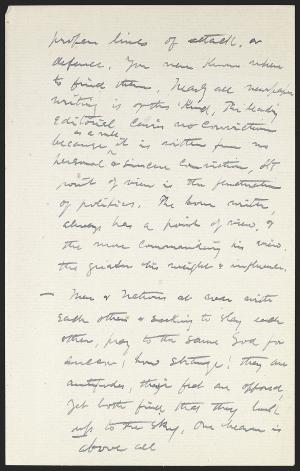 proper lines of attack, or
defence. You never know where
to find them. Nearly all newspaper
writing is of this kind. The leading
Editorial carries no conviction
because, as a rule, it is written from no
personal & sincere conviction. Its
point of view is the
of politics. The born writer
always has a point of view, &
the more commanding his view
the greater his weight & influence.
— Men & Nations at war with
each other & seeking to slay each
other, pray to the same God for
success; how strange! they are
antipodes, their feet are opposed,
yet both find that they look
up to the sky. One heaven is
above all